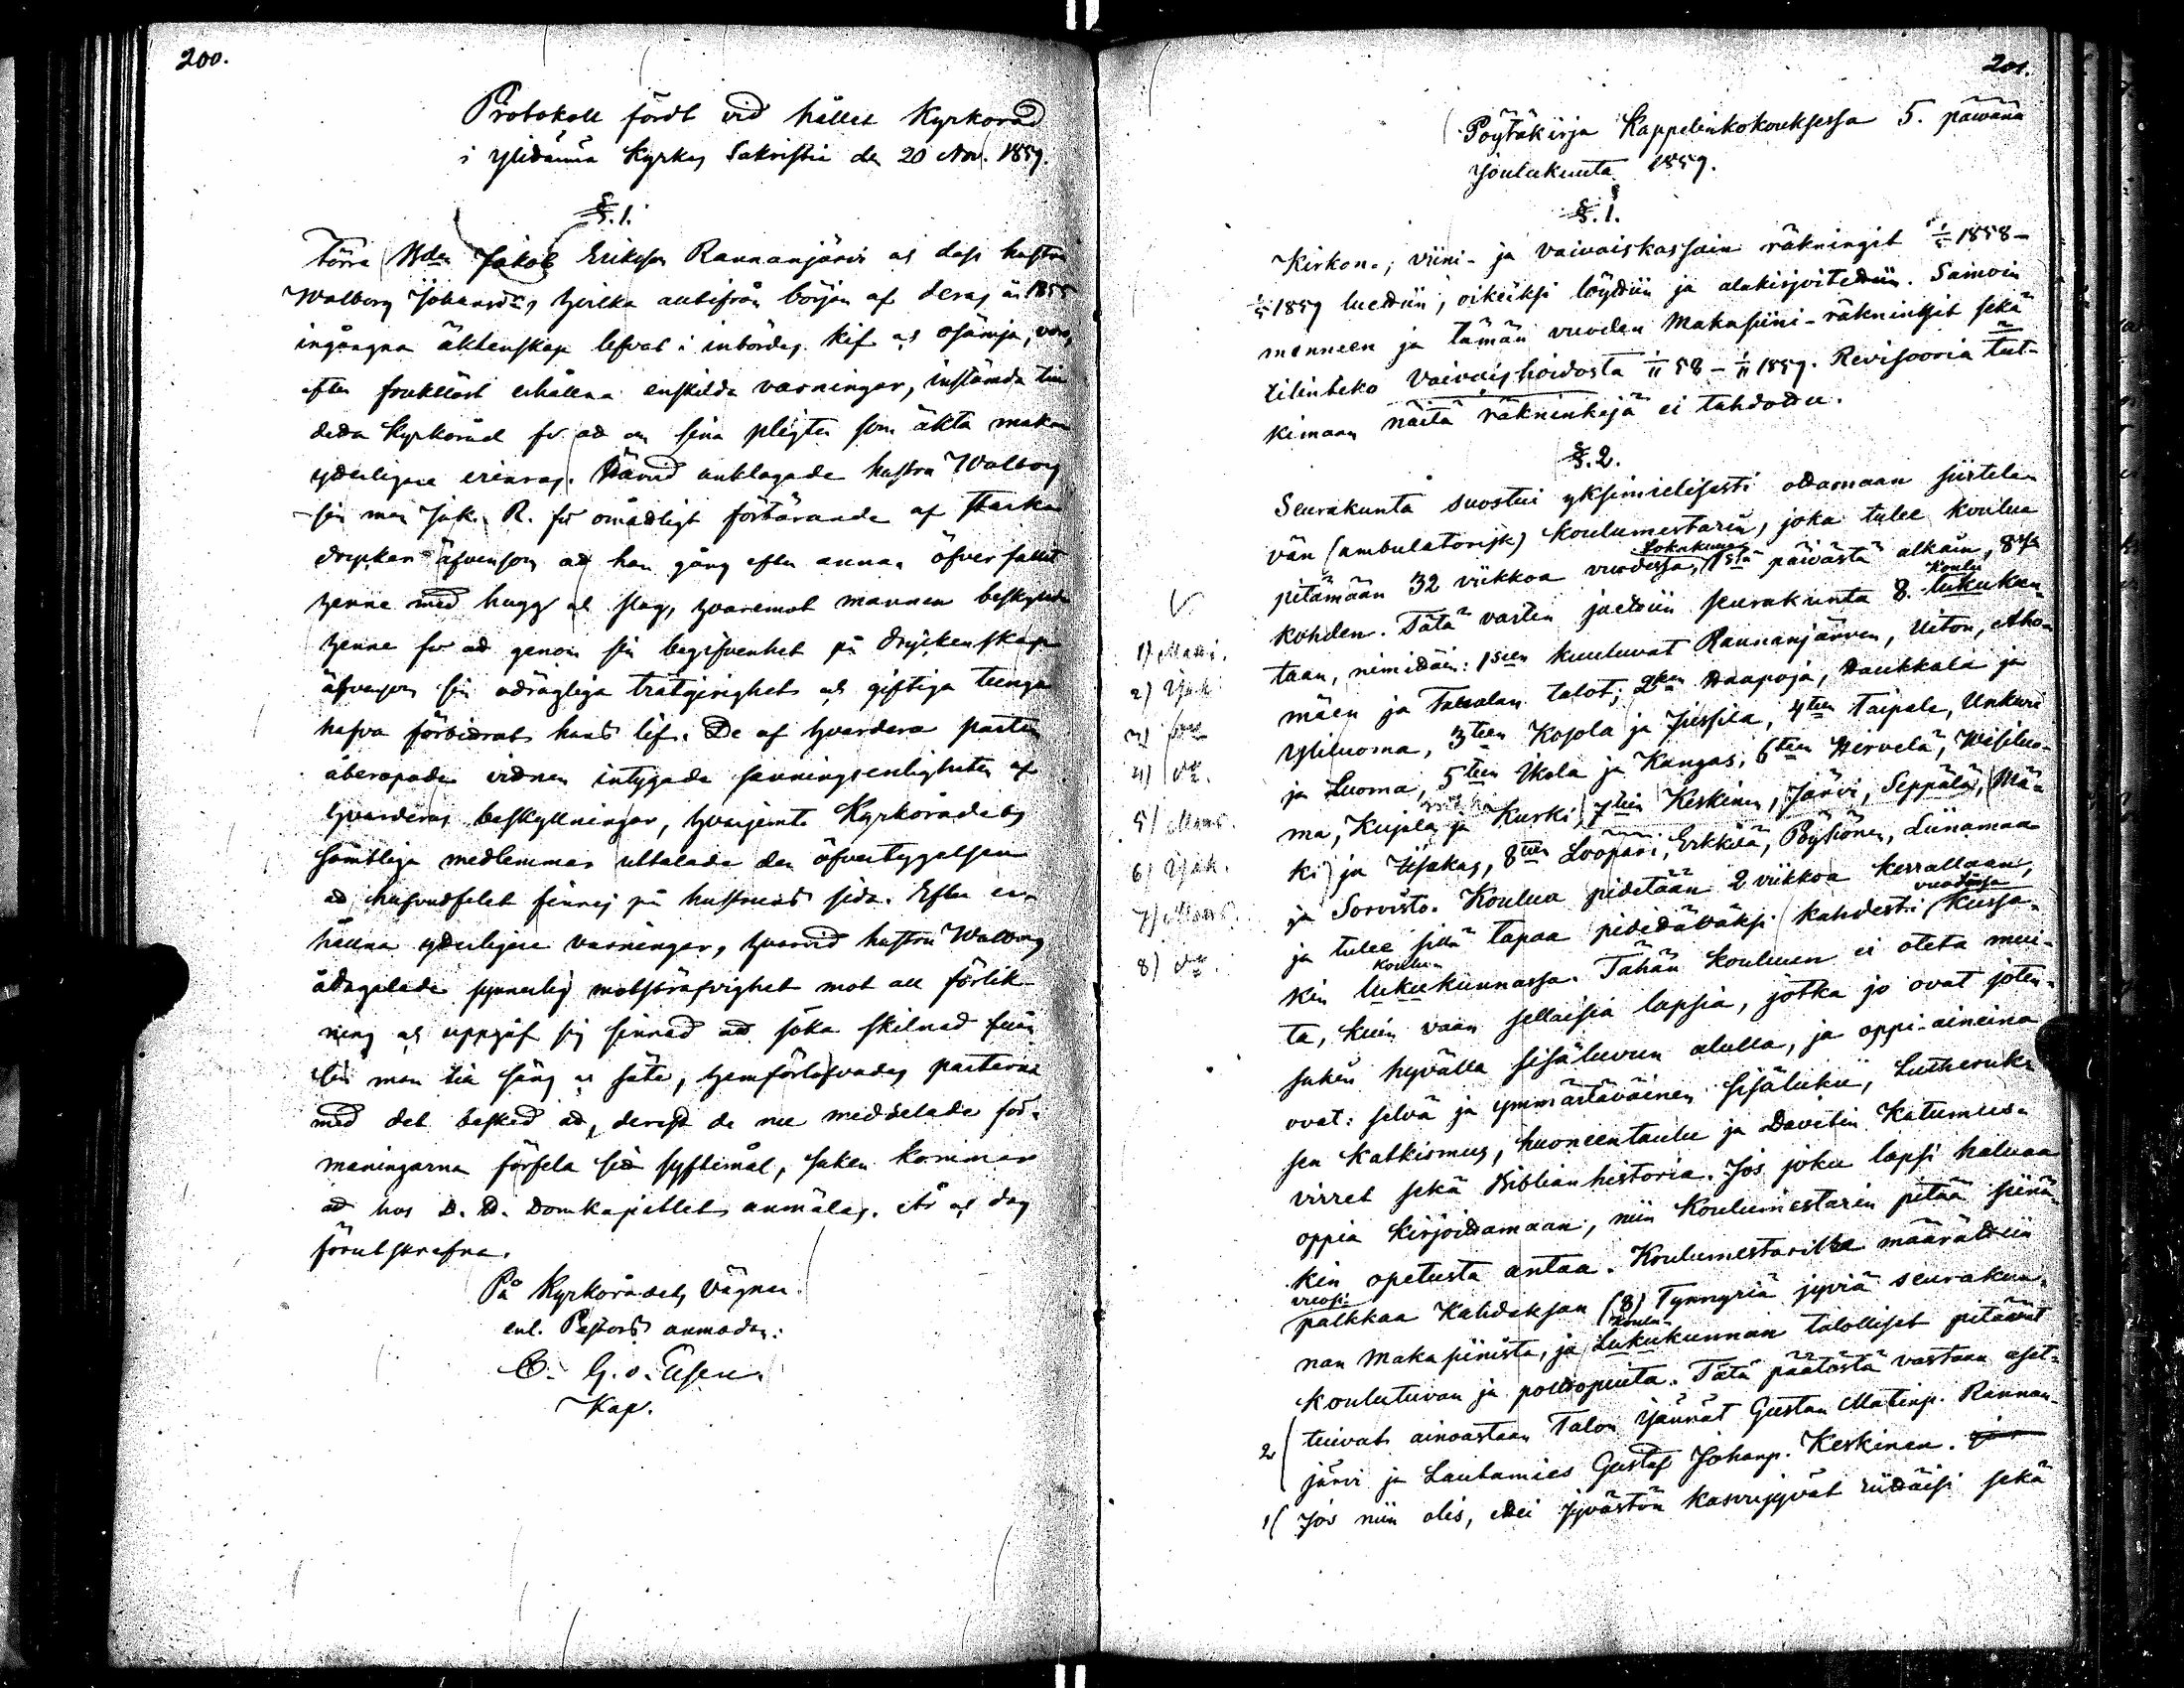 200.
Protokoll fördt vid hållet Kyrkoråd
i Ylihärmä Kyrkas Sakristia den 20 Nov. 1859.
§. 1.
Förra Bden Jakob Eriksson Rannanjärvi och dess hustru
Walborg Johansdr, hvilka allt ifrån början af deras år 1855
ingångna äktenskap lefvat i inbördes kif och osämja, voro,
efter fruktlöst erhållna enskilda varningar, instämda till
detta Kyrkoråd för att om sina pligter som äkta makar
ytterligare erinras. Härvid anklagade hustru Walborg
sin man Jak. R. för omåttligt förtärande af starka
drycker äfvensom att han gång efter annan öfverfallit
henne med hugg och slag, hvaremot mannen beskyllde
henne för att genom sin begifvenhet på dryckenskap
äfvensom sin odrägliga trätgirighet och giftiga tunga
hafva förbittrat hans lif. De af hvardera parten
åberopade vidnen intygade sanningsenligheten af
hvarderas beskyllningar, hvarjemte Kyrkorådets
samtliga medlemmar uttalade den öfvertygelsen
att hufvudfelet finnes på hustruns sida. Efter er-
hållna ytterligare varningar, hvarvid hustru Walborg
ådagalade synnerlig motsträfvighet mot all förlik-
ning och uppgaf sig sinnad att söka skilnad från
sin man till säng och säte, hemförlofvades parterna
med det besked att, derest de nu meddelade för-
maningarna förfela sitt syftemål, saken kommer
att hos D. D. Domkapitlet anmälas. År och dag
förutskrefne.
På Kyrkorådets vägnar
enl. Pastors anmodan:
C. G. v. Essen.
Kap.
201.
Pöytäkirja Kappelinkokouksessa 5. päivänä
Joulukuuta 1859.
§. 1.
Kirkon-, viini- ja vaivaiskassain räkningit 1/5 1858 –
1/5 1859 luettiin, oikeiksi löyttiin ja alakirjoitettiin. Samoin
menneen ja tämän vuoden Makasiini-räkninkit sekä
tilinteko Vaivaishoidosta 1/11 58 – 1/11 1859. Revisooria tut-
kimaan näitä räkninkejä ei tahdottu.
§. 2.
Seurakunta suostui yksimielisesti ottamaan siirtele-
vän (ambulatorisk) koulumestarin, joka tulee koulua
pitämään 32 viikkoa vuodessa, Lokakuun 1stä päivästä alkain, 8ssa
kohden. Tätä varten jaettiin seurakunta 8. koulu lukukun-
taan, nimittäin: 1seen kuuluvat Rannanjärven, Uiton, Aho-
mäen ja talot; 2een Haapoja, Haukkala ja
Yliluoma, 3teen Kojola ja Jussila, 4teen Taipale, Unkuri
ja Luoma, 5teen Ekola ja Kangas, 6teen Hirvelä, Wisiluo-
ma, Kujala ja Kurki, 7teen Keskinen, Järvi, Seppälä, Mä-
ki ja Iisakas, 8teen Lööpäri, Erkkilä, Pöysiönen, Liinamaa
ja Sorvisto. Koulua pidetään 2 viikkoa kerrallaan,
ja tulee sillä tapaa pidettäväksi kahdesti vuodessa kussa-
kin koulu- lukukunnassa. Tähän kouluun ei oteta mui-
ta, kuin vaan sellaisia lapsia, jotka jo ovat joten-
sakin hyvällä sisäluvun alulla, ja oppi-aineina
ovat: selvä ja ymmärtäväinen sisäluku, Lutheruk-
sen Katkismus, huoneentaulu ja Davetin Katumus-
virret sekä Biblianhistoria. Jos joku lapsi haluaa
oppia kirjoittamaan, niin Koulumestarin pitää siinä-
kin opetusta antaa. Koulumestarille määrättiin
vuosi palkkaa Kahdeksan (8) Tynnyriä jyviä seurakun-
nan Makasiinista, ja koulu- Lukukunnan talolliset pitävät
koulutuvan ja polttopuita. Tätä päätöstä vastaan aset-
2 tuivat ainoastaan Talon isännät Gustav Matinp. Rannan-
järvi ja Lautamies Gustaf Johanp. Keskinen.
1 Jos niin olis, ettei Jyvästön kasvujyvät riittäisi sekä
1) Matti.
2) Jak.
3)
4)
5)
6) Jak.
7)
8)